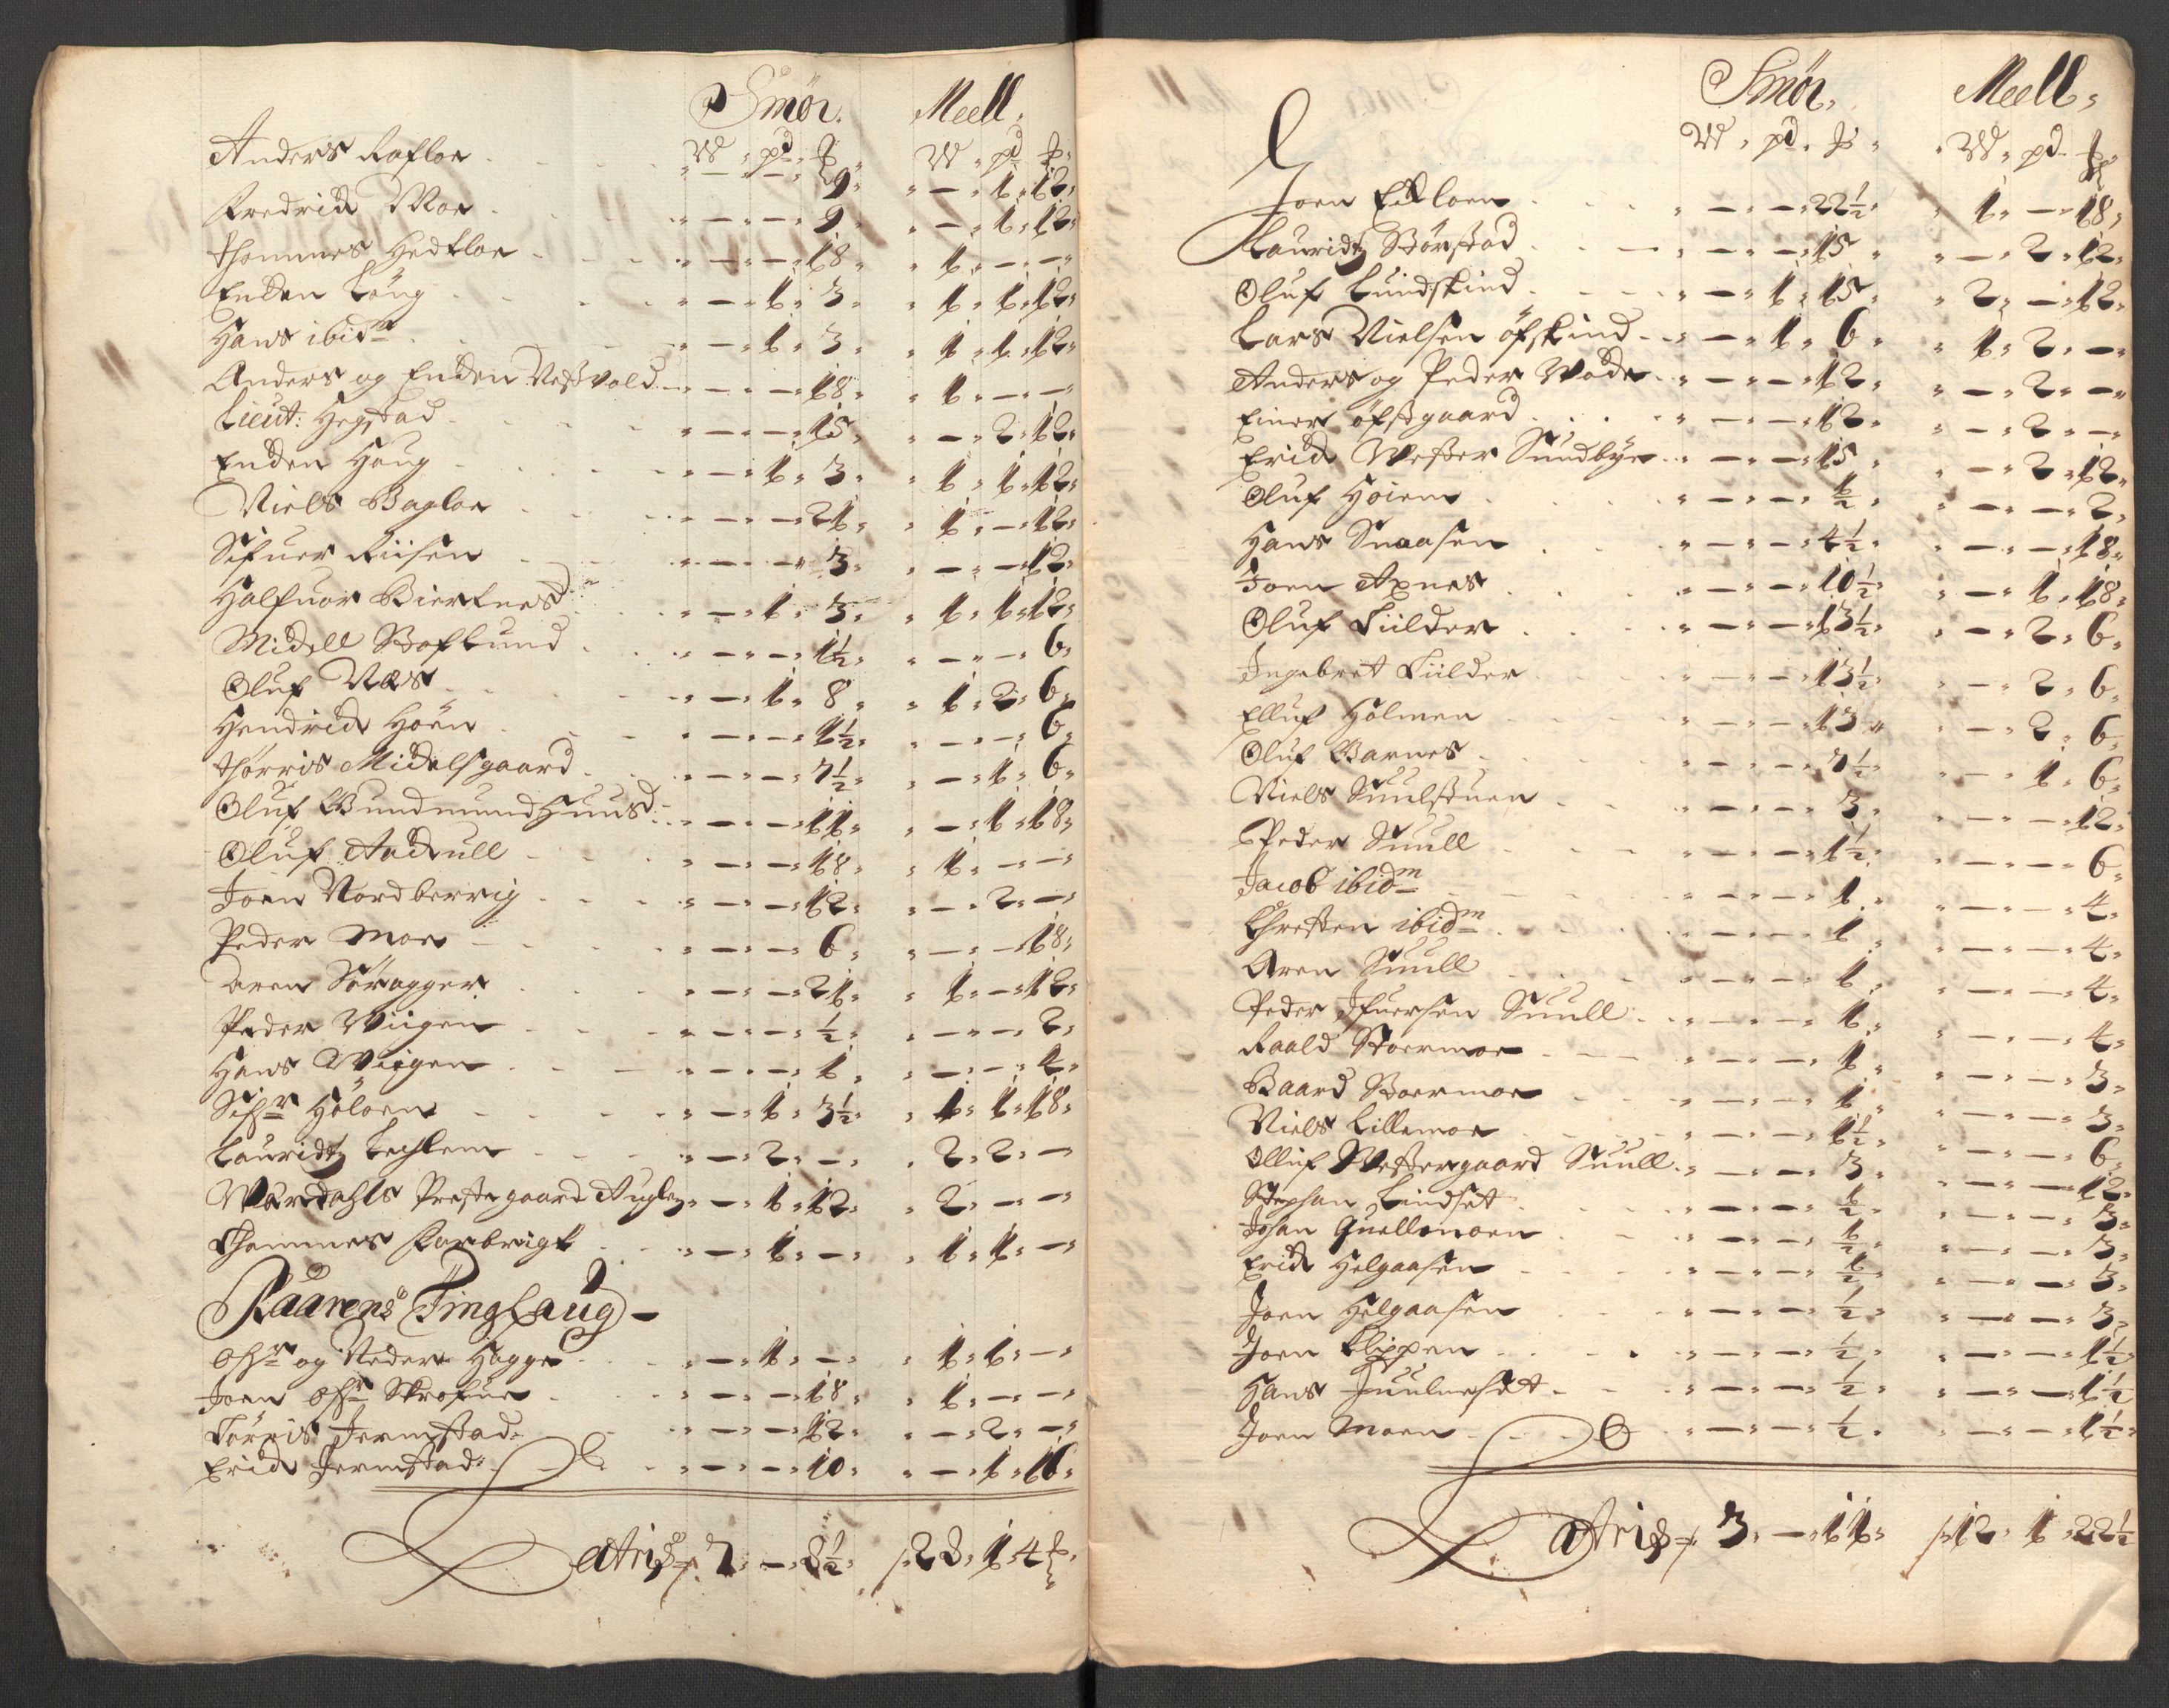 Smör. Meell.
W pd ℔ W pd ℔
Anders Rosloe - - 9 - 1 12
Fredrich Moe - - 9 - 1 12
Thommes Hedtloe - - 18 1 - -
Endten Loug - 1 3 1 1 12
Hans ibidm - 1 3 1 1 12
Anders og Endten Nestvold - - 18 1 - -
Lieut: Hegstad - - 15 - 2 12
Endten Houg - 1 3 1 1 12
Niels Bagloe - - 21 1 - 12
Sifuer Riisen - - 3 - - 12
Halfuor Biertnes - 1 3 1 1 12
Michell Boslund - - 1½ - - 6
Oluf Næs - 1 8 1 2 6
Hendrich Höen - - 1½ - - 6
Thorris Michelsgaard - - 7½ - 1 6
Oluf Gundmundhuus - - 11 - 1 18
Oluf Aachull - - 18 1 - -
Joen Nordberrig - - 12 - 2 -
Peder Moe - - 6 - - 18
Aren Söragger - - 21 1 - 12
Peder Wiigen - - ½ - - 2
Hans Wiigen - - 1 - - 4
Sifr Höloen - 1 3½ 1 1 18
Lauridtz Lechlem - 2 - 2 2 -
Værdahls Prestegaard Auglen - 1 12 2 - -
Thommes Karbrigt - 1 - 1 1 -
Skaarens Tinglaug
Ofr og Neder Hagge - 1 - 1 1 -
Joen Ofr Skrofue - - 18 1 - -
Torris Jermstad - - 12 - 2 -
Erich Jermstad - - 10 - 1 16
Latris 7 - 8½ 28 1 4
Smör, Meell,
W pd ℔ W pd ℔
Joen Ekloen - - 22½ 1 - 18
Lauridtz Börstad - - 15 - 2 12
Oluf Lundskind - 1 15 2 - 12
Lars Nielsen öfskind - 1 6 1 2 -
Anders og Peder Wode - - 12 - 2 -
Einer öfstgaard - - 12 - 2 -
Erich Wester Sundbye - - 15 - 2 12
Oluf Höiem - - ½ - - 2
Hans Snaasen - - 4½ - - 18
Joen Axnes - - 10½ - 1 18
Oluf Tiilder - - 13½ - 2 6
Ingebret Tiilder - - 13½ - 2 6
Elluf Holmen - - 13 - 2 6
Oluf Garnes - - 7½ - 1 6
Niels Suulstuen - - 3 - - 12
Peder Suull - - 1½ - - 6
Jacob ibidm - - 1 - - 4
Chresten ibidm - - 1 - - 4
Aren Suull - - 1 - - 4
Peder Ifuersen Suull - - 1 - - 4
Raald Stoermoe - - 1 - - 3
Baard Boermoe - - 1 - - 3
Niels Lillemoe - - 1½ - - 6
Olluf Westergaard Suull - - 3 - - 12
Stephan Lindset - - ½ - - 3
Johan Quellomoen - - ½ - - 3
Erich Helgaasen - - ½ - - 3
Joen Helgaasen - - ½ - - 3
Joen Klippen - - ½ - - 1½
Hans Juulnesset - - ½ - - 1½
Joen Moen - - ½ - - 1½
Latris 3 - 11 12 1 22½